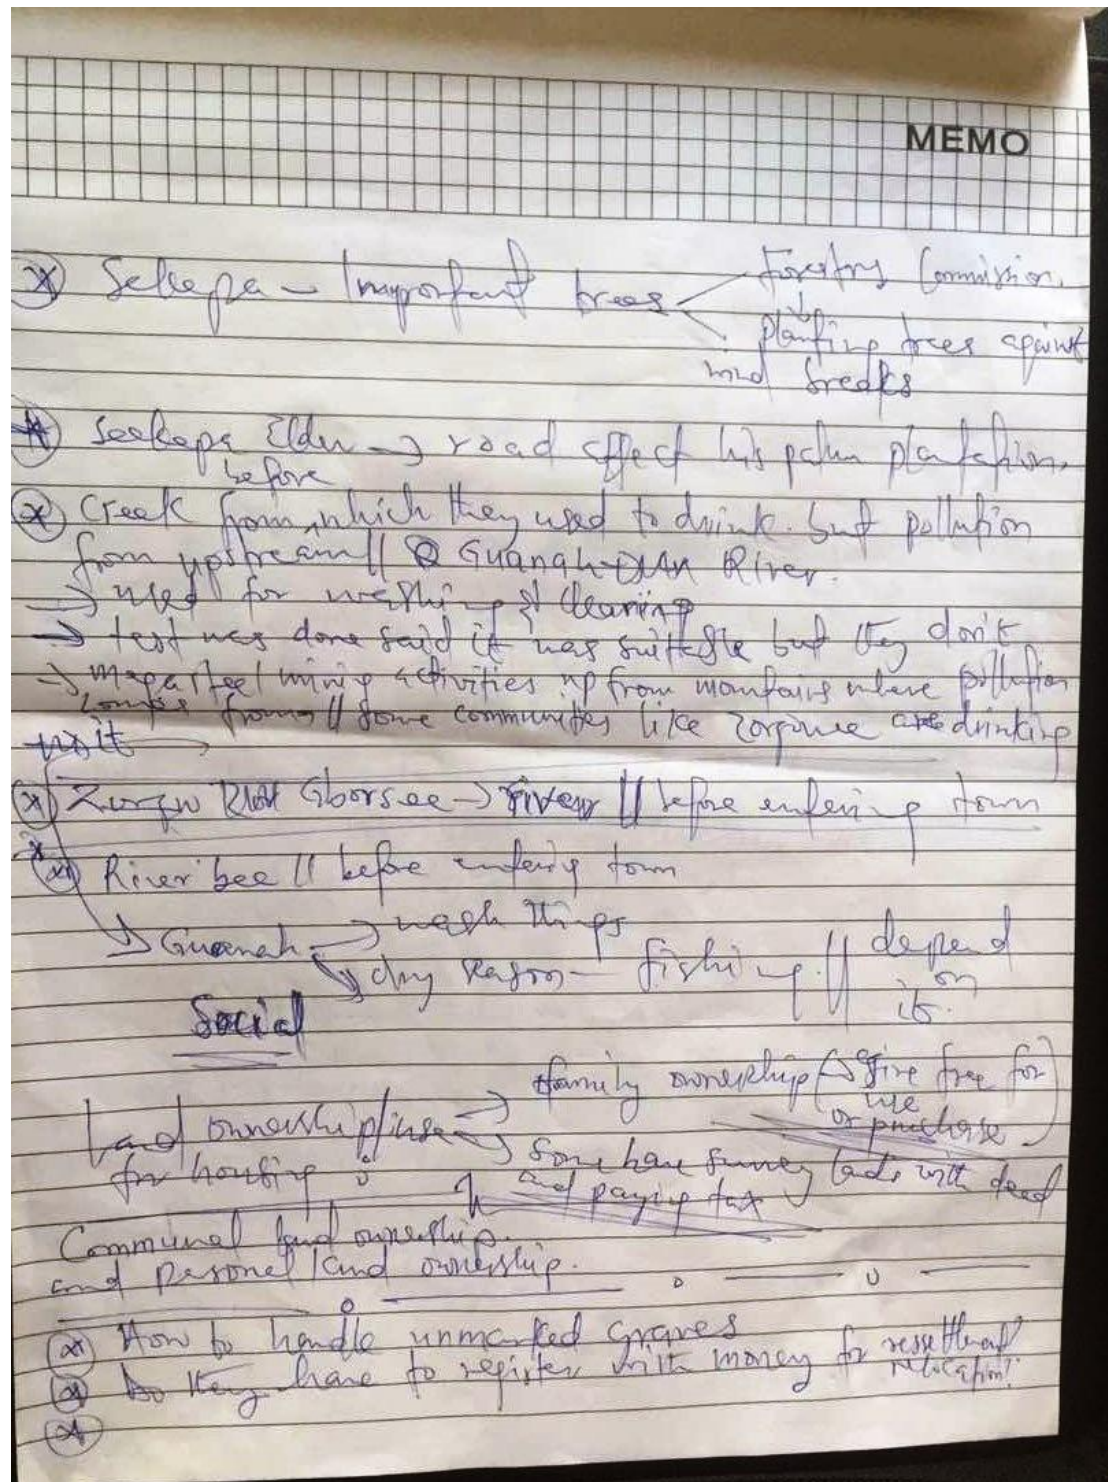 MEMO
Sekepa - Important trees Forestry Commission
planting trees against
wind breaks
Seekepa Elder → road affect his palm plantation.
before
Creek from which they used to drink but pollution
from upstream // Guanah River.
→ used for washing & cleaning
→ test was done said it was suitable but they don't
→ mining activities up from mountains where pollution
comes from // some communities like are drinking
it
Gborsee → river // before entering town
River bee // before entering town
Guanah → wash things
dry season - fishing // depend
on
it.
Social
Land ownership/use → family ownership (→ give free for
use
or purchase)
for housing → Some have survey lands with deed
and paying tax
Communal land ownership.
and personel land ownership.
How to handle unmarked graves
Do they have to register with money for ressettlement
relocation?